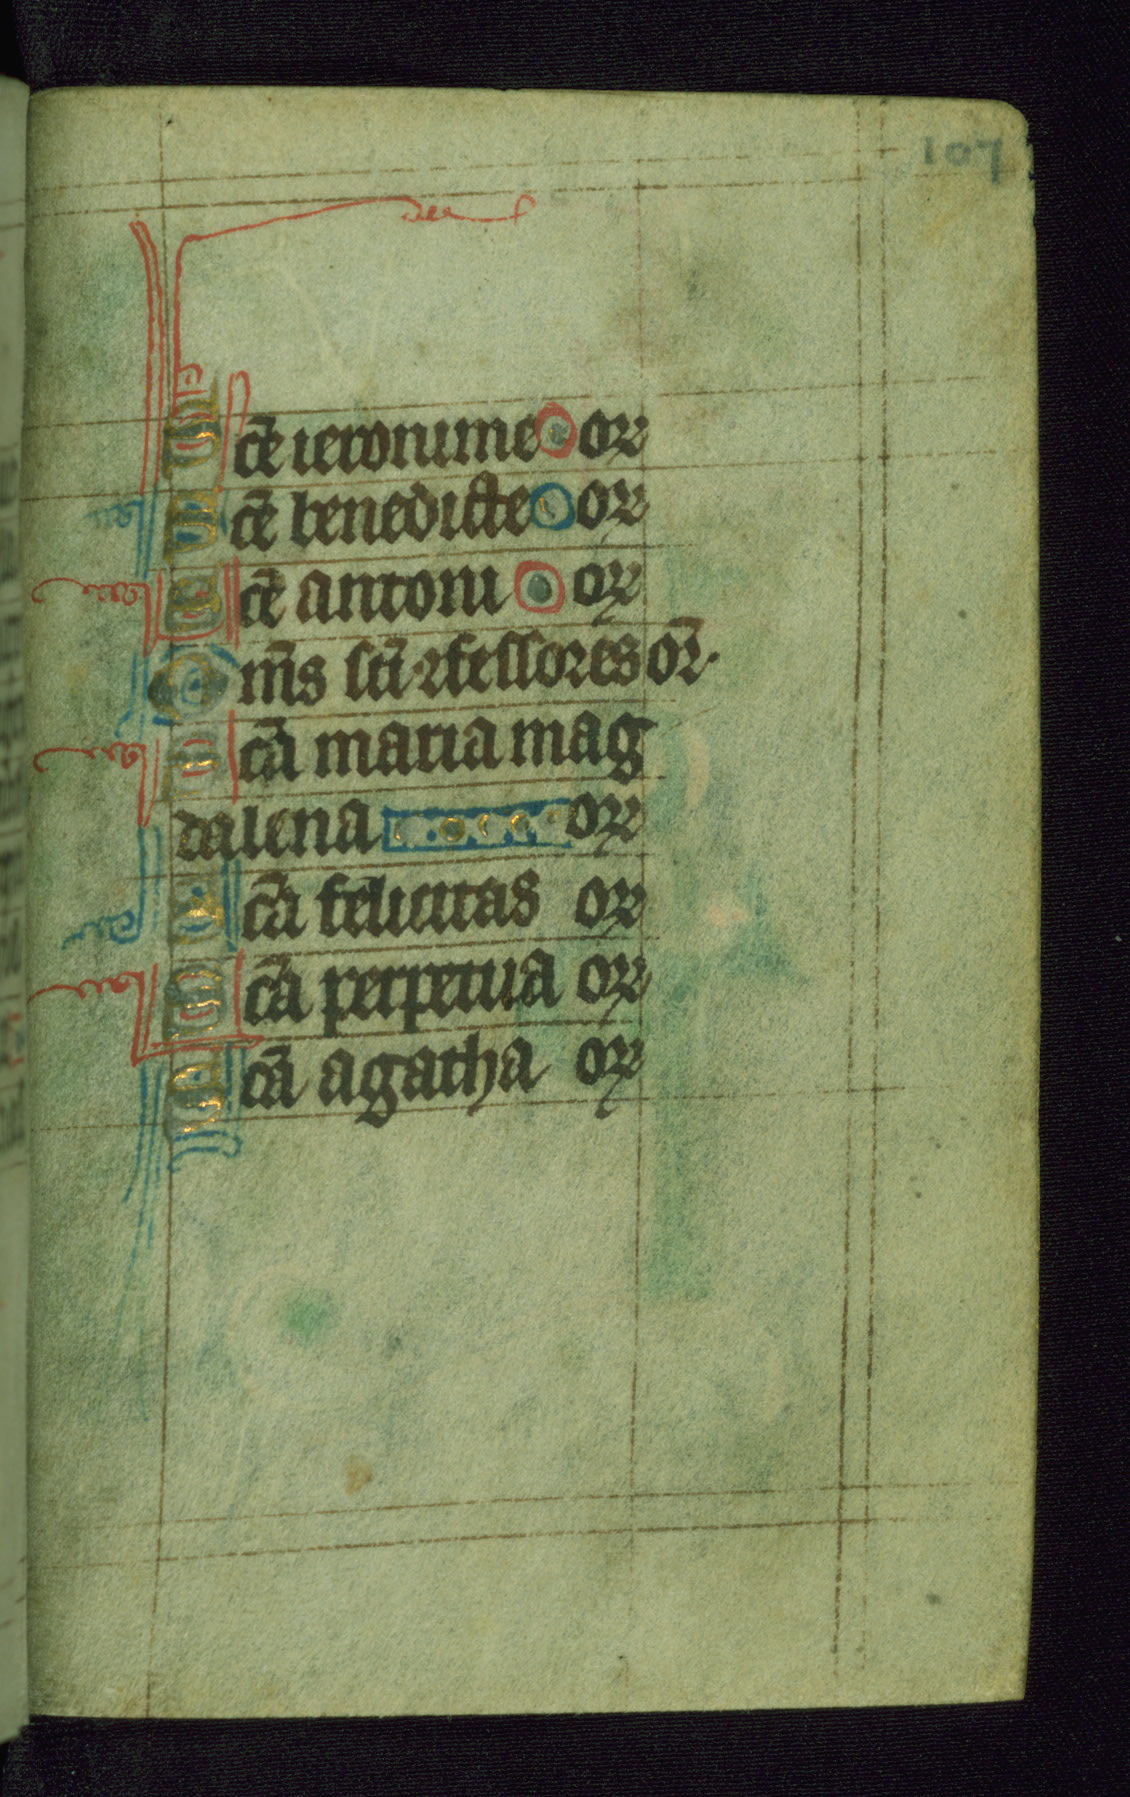 107
Scē ieronime or
Scē benedicte or
Scē antoni or
Om̄s scī ꝯfessores or̄·
Scā maria mag
dalena or
Scā felicitas or
Scā perpetua or
Scā agatha or